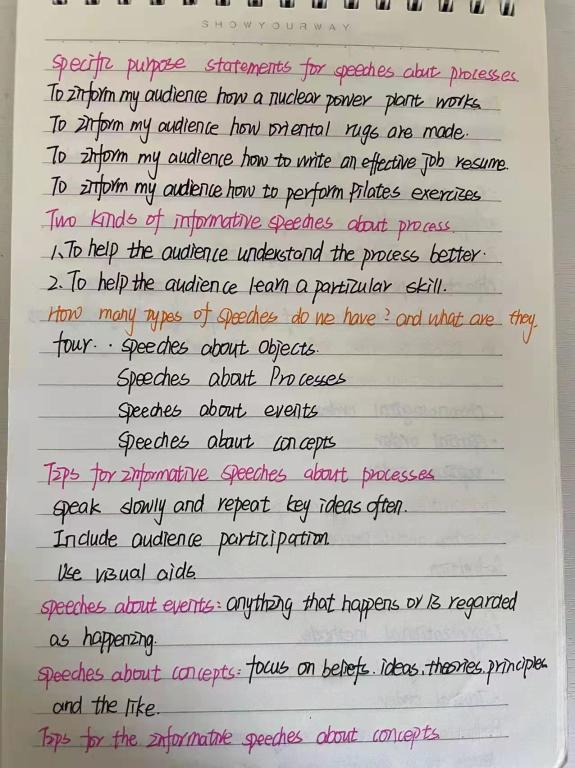 SHOWYOURWAY
specific purpose statements for speeches abut processes
To inform my audience how a nuclear power plant works.
To inform my audience how oriental rugs are made.
To inform my audience how to write an effective job resume.
To inform my audience how to perform Pilates exercises
Two kinds of informative speeches about process.
1. To help the audience understand the process better.
2. To help the audience learn a particular skill.
How many types of speeches do we have? and what are they.
four.. speeches about objects.
speeches about Processes
speeches about events
speeches about concepts
Tips for informative speeches about processes
speak slowly and repeat key ideas often.
Include audience participation
Use visual aids
speeches about events: anything that happens or is regarded
as happening.
speeches about concepts: focus on beliefs. ideas. theories. principles
and the like.
Tips for the informative speeches about concepts